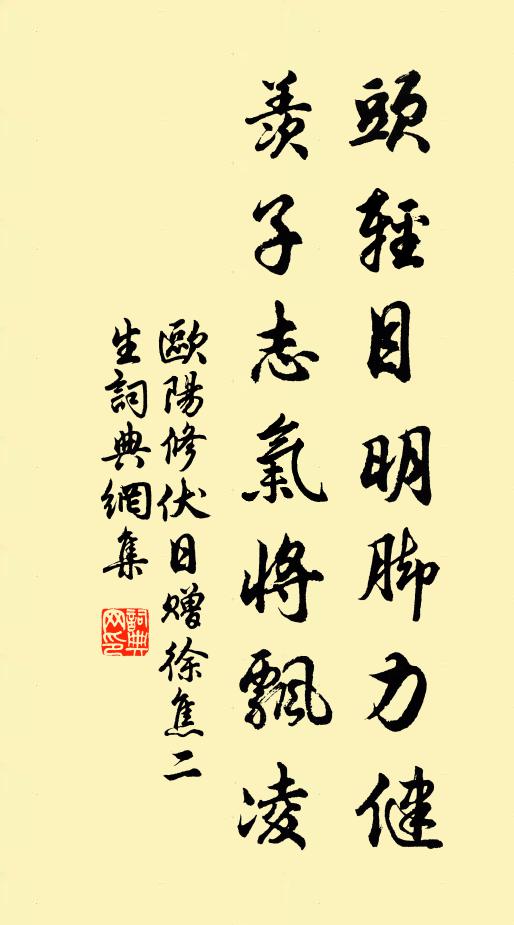 頭輕目明脚力健
羨子志氣將飄凌
歐陽修伏日贈徐焦二
生詞典網集
詞典網印